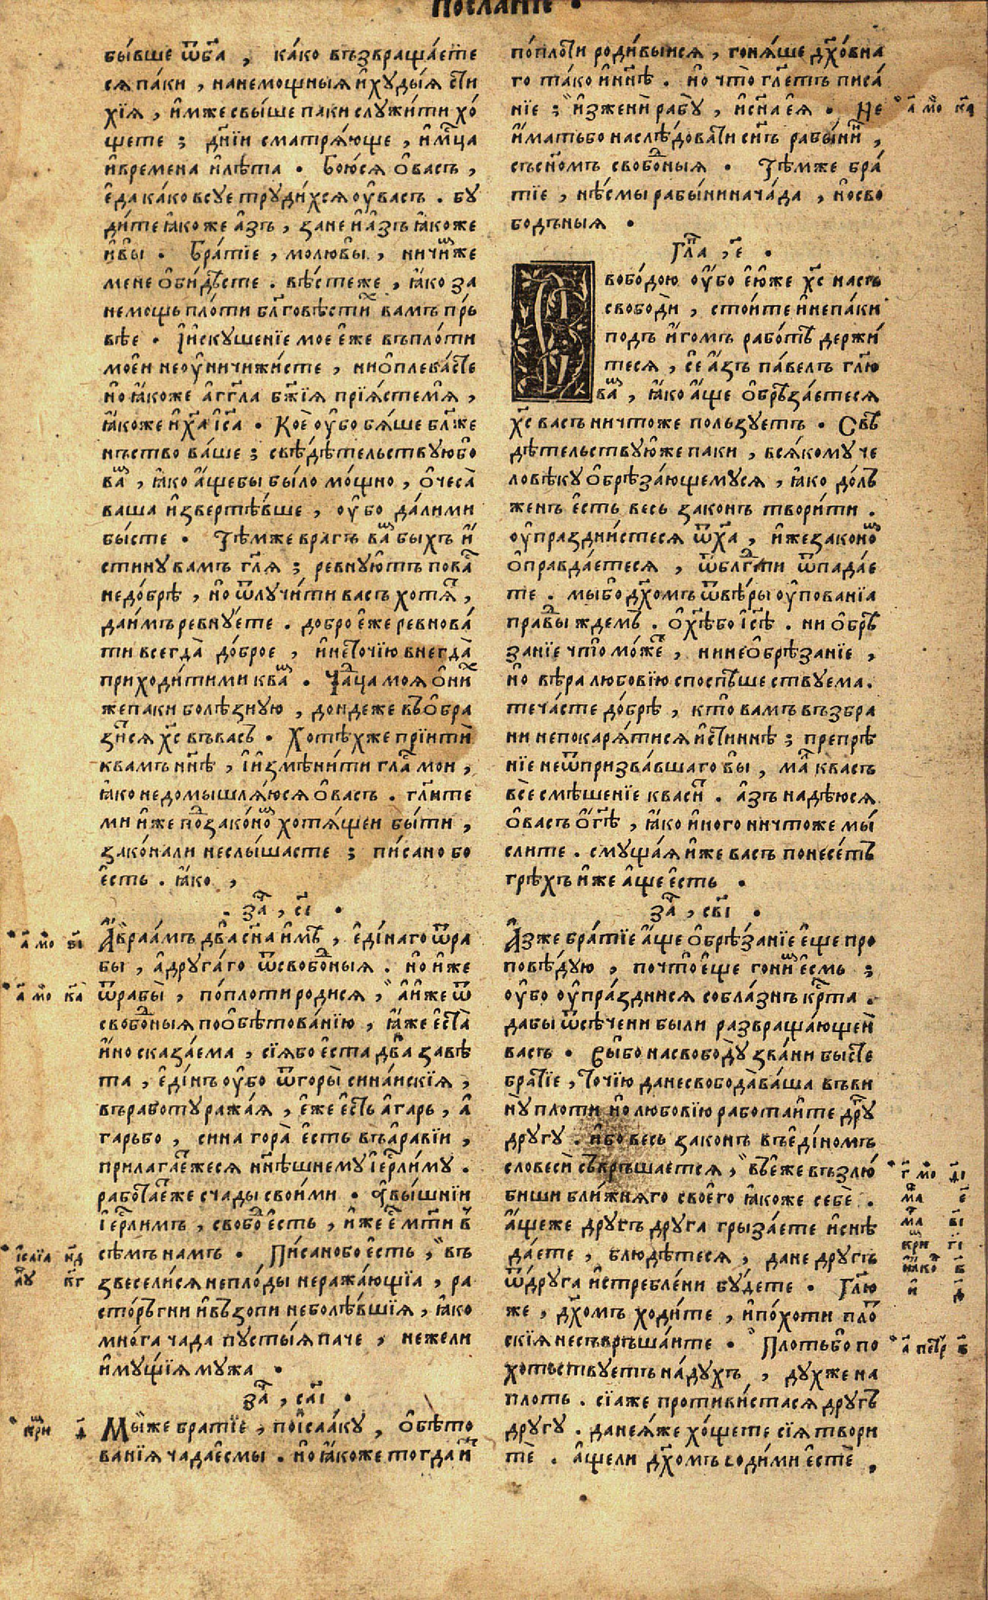 Посланїе •
бы́вше ѿ бг҃а , ка́ко възвраща́ете
ся па́ки , на немощны́я и҆ худы́я сти
хїя , и҆мже свы́ше паки служи́ти хо́
щете ; дн҃їи сматря́юще , и҆ мц҃а
и҆ времена и҆ лѣта • Бою́ся о҆ васъ ,
е҆да ка́ко всуе труди́хся ѹ҆ васъ . бу
ди́те ꙗ҆коже а҆зъ , зане и҆ а҆зъ ꙗ҆коже
и҆ вы • Бра́тїе , молю вы , ничи́мже
мене о҆би́дѣсте . вѣ́сте же , ꙗ҆ко за
немощь пло́ти бл҃говѣсти́хъ вамъ пръ
вѣе • И҆ искушенїе мое е҆же въ пло́ти
мое́и не ѹ҆ничижи́сте , ни о҆плева́сте
но ꙗ҆коже а҆гг҃ла бж҃їя прїя́сте мя ,
ꙗ҆коже и҆ хс҃а і҆с҃а • Коѐ ѹ҆бо бя́ше бл҃же
нъство ва́ше ; свѣдѣ́тельствую бо
ва́мъ , ꙗ҆ко а҆ще бы бы́ло мо́щно , о҆чеса̀
ваша и҆звертѣ́вше , ѹ҆бо да́ли ми
бы́сте • Тѣ́мже врагъ ва́мъ быхъ и҆
стину вамъ гл҃я ; ревну́ютъ по ва́съ
не до́брѣ , но ѿлучи́ти васъ хотя́тъ ,
да и҆мъ ревну́ете . добро е҆же ревнова́
ти всегда̀ до́брое , и҆ не то́чїю внегда̀
приходи́ти ми к ва́мъ • Ча́дца моя о҆ ни́х
же паки болѣ́зную , дондеже въ о҆бра
зи́ся хс҃ въ васъ • Хотѣ́х же прїитѝ
к вамъ нн҃ѣ , и҆ и҆змѣни́ти гла́съ мои ,
ꙗ҆ко не домышля́юся о҆ васъ . гл҃ите
ми и҆же под зако́номъ хотя́щеи бы́ти ,
зако́на ли не слы́шасте ; пи́сано бо
е҆сть . ꙗ҆ко ,
за҃ , сі •
А҆враа́мъ два̀ сн҃а и҆мѣ , е҆ди́наго ѿ ра
бы , а҆ друга́го ѿ свобо́дныя . но и҆же
ѿ рабы̀ , по пло́ти роди́ся , а҆ и҆же ѿ
свобо́дныя по о҆бѣтова́нїю , ꙗ҆́же е҆ста̀
и҆но сказа́ема , сїя бо е҆ста два̀ завѣ
та , е҆ди́нъ ѹ҆бо ѿ горы̀ сина́искїя ,
въ рабо́ту ража́я , е҆же е҆сть а҆гарь , а҆
гарь бо , сина гора̀ е҆сть въ а҆ра́вїи ,
прилага́ет же ся нн҃ѣшнему і҆ер҃лиму .
рабо́тает же с ча́ды свои́ми • А҆ вы́шнїи
і҆ер҃лимъ , свобо́дь е҆сть , и҆же е҆сть мт҃и в
сѣ́мъ намъ • Пи́сано бо е҆сть , въ
звесели́ся непло́ды неража́ющїа , ра
сто́ргни и҆ възопи не болѣ́вшїя , ꙗ҆ко
мно́га ча́да пусты́я паче , нежели
и҆му́щїя мужа •
за҃ , саі •
Мы же братїе , по і҆саа́ку , о҆бѣто
ванїя ча́да е҆смы • но ꙗ҆коже тогда и҆
по пло́ти роди́выися , гоня́ше дх҃о́вна
го та́ко и҆ нн҃ѣ . но что̀ гл҃етъ писа́
нїе ; и҆зженѝ рабу̀ , и҆ сн҃а е҆я̀ • Не
и҆мать бо наслѣ́довати сн҃ъ рабы́нинъ ,
съ сн҃омъ свобо́дныя • Тѣ́мже бра́
тїе , нѣ́смы рабы́ни ча́да , но сво
бо́дныя •
Гла҃ , е҃ •
Свобо́дою ѹ҆бо е҆юже хс҃ насъ
свободѝ , сто́ите и҆ не па́ки
подъ и҆гомъ рабо́тѣ держи́
теся , се а҆зъ па́велъ гл҃ю
ва́мъ , ꙗ҆ко а҆ще о҆брѣза́етеся
хс҃ васъ ничтоже пользуетъ • Свѣ
дѣ́тельствую же паки , вся́кому че
ловѣку о҆брѣза́ющемуся , ꙗ҆ко до́лъ
женъ е҆сть весь зако́нъ твори́ти .
ѹ҆праздни́стеся ѿ хс҃а , и҆же зако́номъ
о҆правда́етеся , ѿ бл҃гдти ѿпада́е
те . мы бо дх҃омъ ѿ вѣ́ры ѹ҆пова́нїа
пра́вды ждемъ . о҆ хс҃ѣ бо і҆с҃ѣ . ни о҆брѣ
за́нїе что мо́жетъ , ни не о҆брѣзанїе ,
но вѣра любо́вїю поспѣ́шествуема .
теча́сте до́брѣ , кто вамъ възбра
ни не покаря́тися и҆ стиннѣ ; препрѣ́
нїе не ѿ призва́вшаго вы , ма́лъ квасъ
все смѣше́нїе ква́ситъ . а҆зъ надѣ́юся
о҆ васъ о҆ гд҃ѣ , ꙗ҆ко и҆ного ничтоже мы́
слите . смуща́я и҆же васъ понесе́тъ
грѣхъ и҆же а҆ще е҆сть •
за҃ , сві •
А҆з же братїе а҆ще о҆брѣ́занїе е҆ще про
повѣ́дую , почто̀ е҆ще гони́мъ е҆смь ;
ѹ҆бо ѹ҆пра́зднися собла́знъ кр҃та .
дабы ѿсѣ́чени были развраща́ющеи
васъ • Вы бо на свобо́ду зва́ни бы́сте
братїе , То́чїю да не свобода̀ ва́ша въ ви
ну̀ плоти но любо́вїю рабо́таите дру́гъ
другу . и҆бо весь законъ въ е҆ди́номъ
словесѝ съвръша́ется , въ е҆же възлю́
биши бли́жняго своего̀ ꙗ҆коже себѐ .
А҆ще же другъ друга грыза́ете и҆ снѣ
да́ете , блюдѣ́теся , да не другъ
ѿ друга и҆стребле́ни бу́дете • Гл҃ю
же , дх҃омъ ходи́те , и҆ по́хоти пло́т
скїя не съвръша́ите • Плоть бо по
хотьствуетъ на ду́хъ , дух же на
плоть . сїа же проти́вистася другъ
другу . да не я́же хо́щете сїя твори
те . а҆ще ли дх҃омъ води́ми е҆стѐ ,